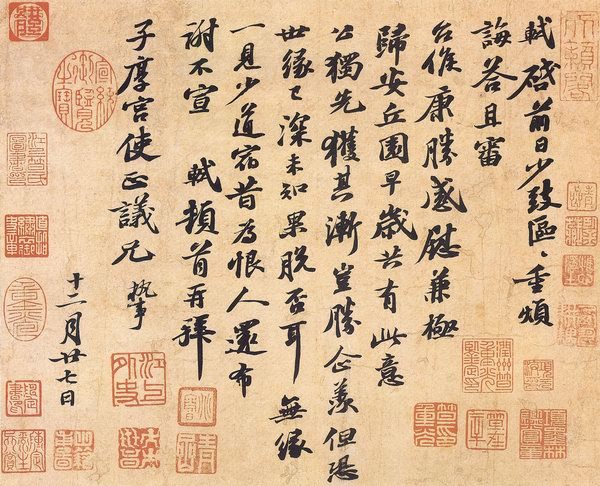 天籟閣
軾啓前日少致區〻重煩
誨荅且審
台候康勝感慰兼極
歸安丘園早歲共有此意
公獨先獲其漸豈勝企羨但恐
世緣已深未知果脫否耳無緣
一見少道宿昔為恨人還布
謝不宣 軾頓首再拜
子厚宫使正議兄 執事
十二月廿七日
宣統御覽之寶
江上外史